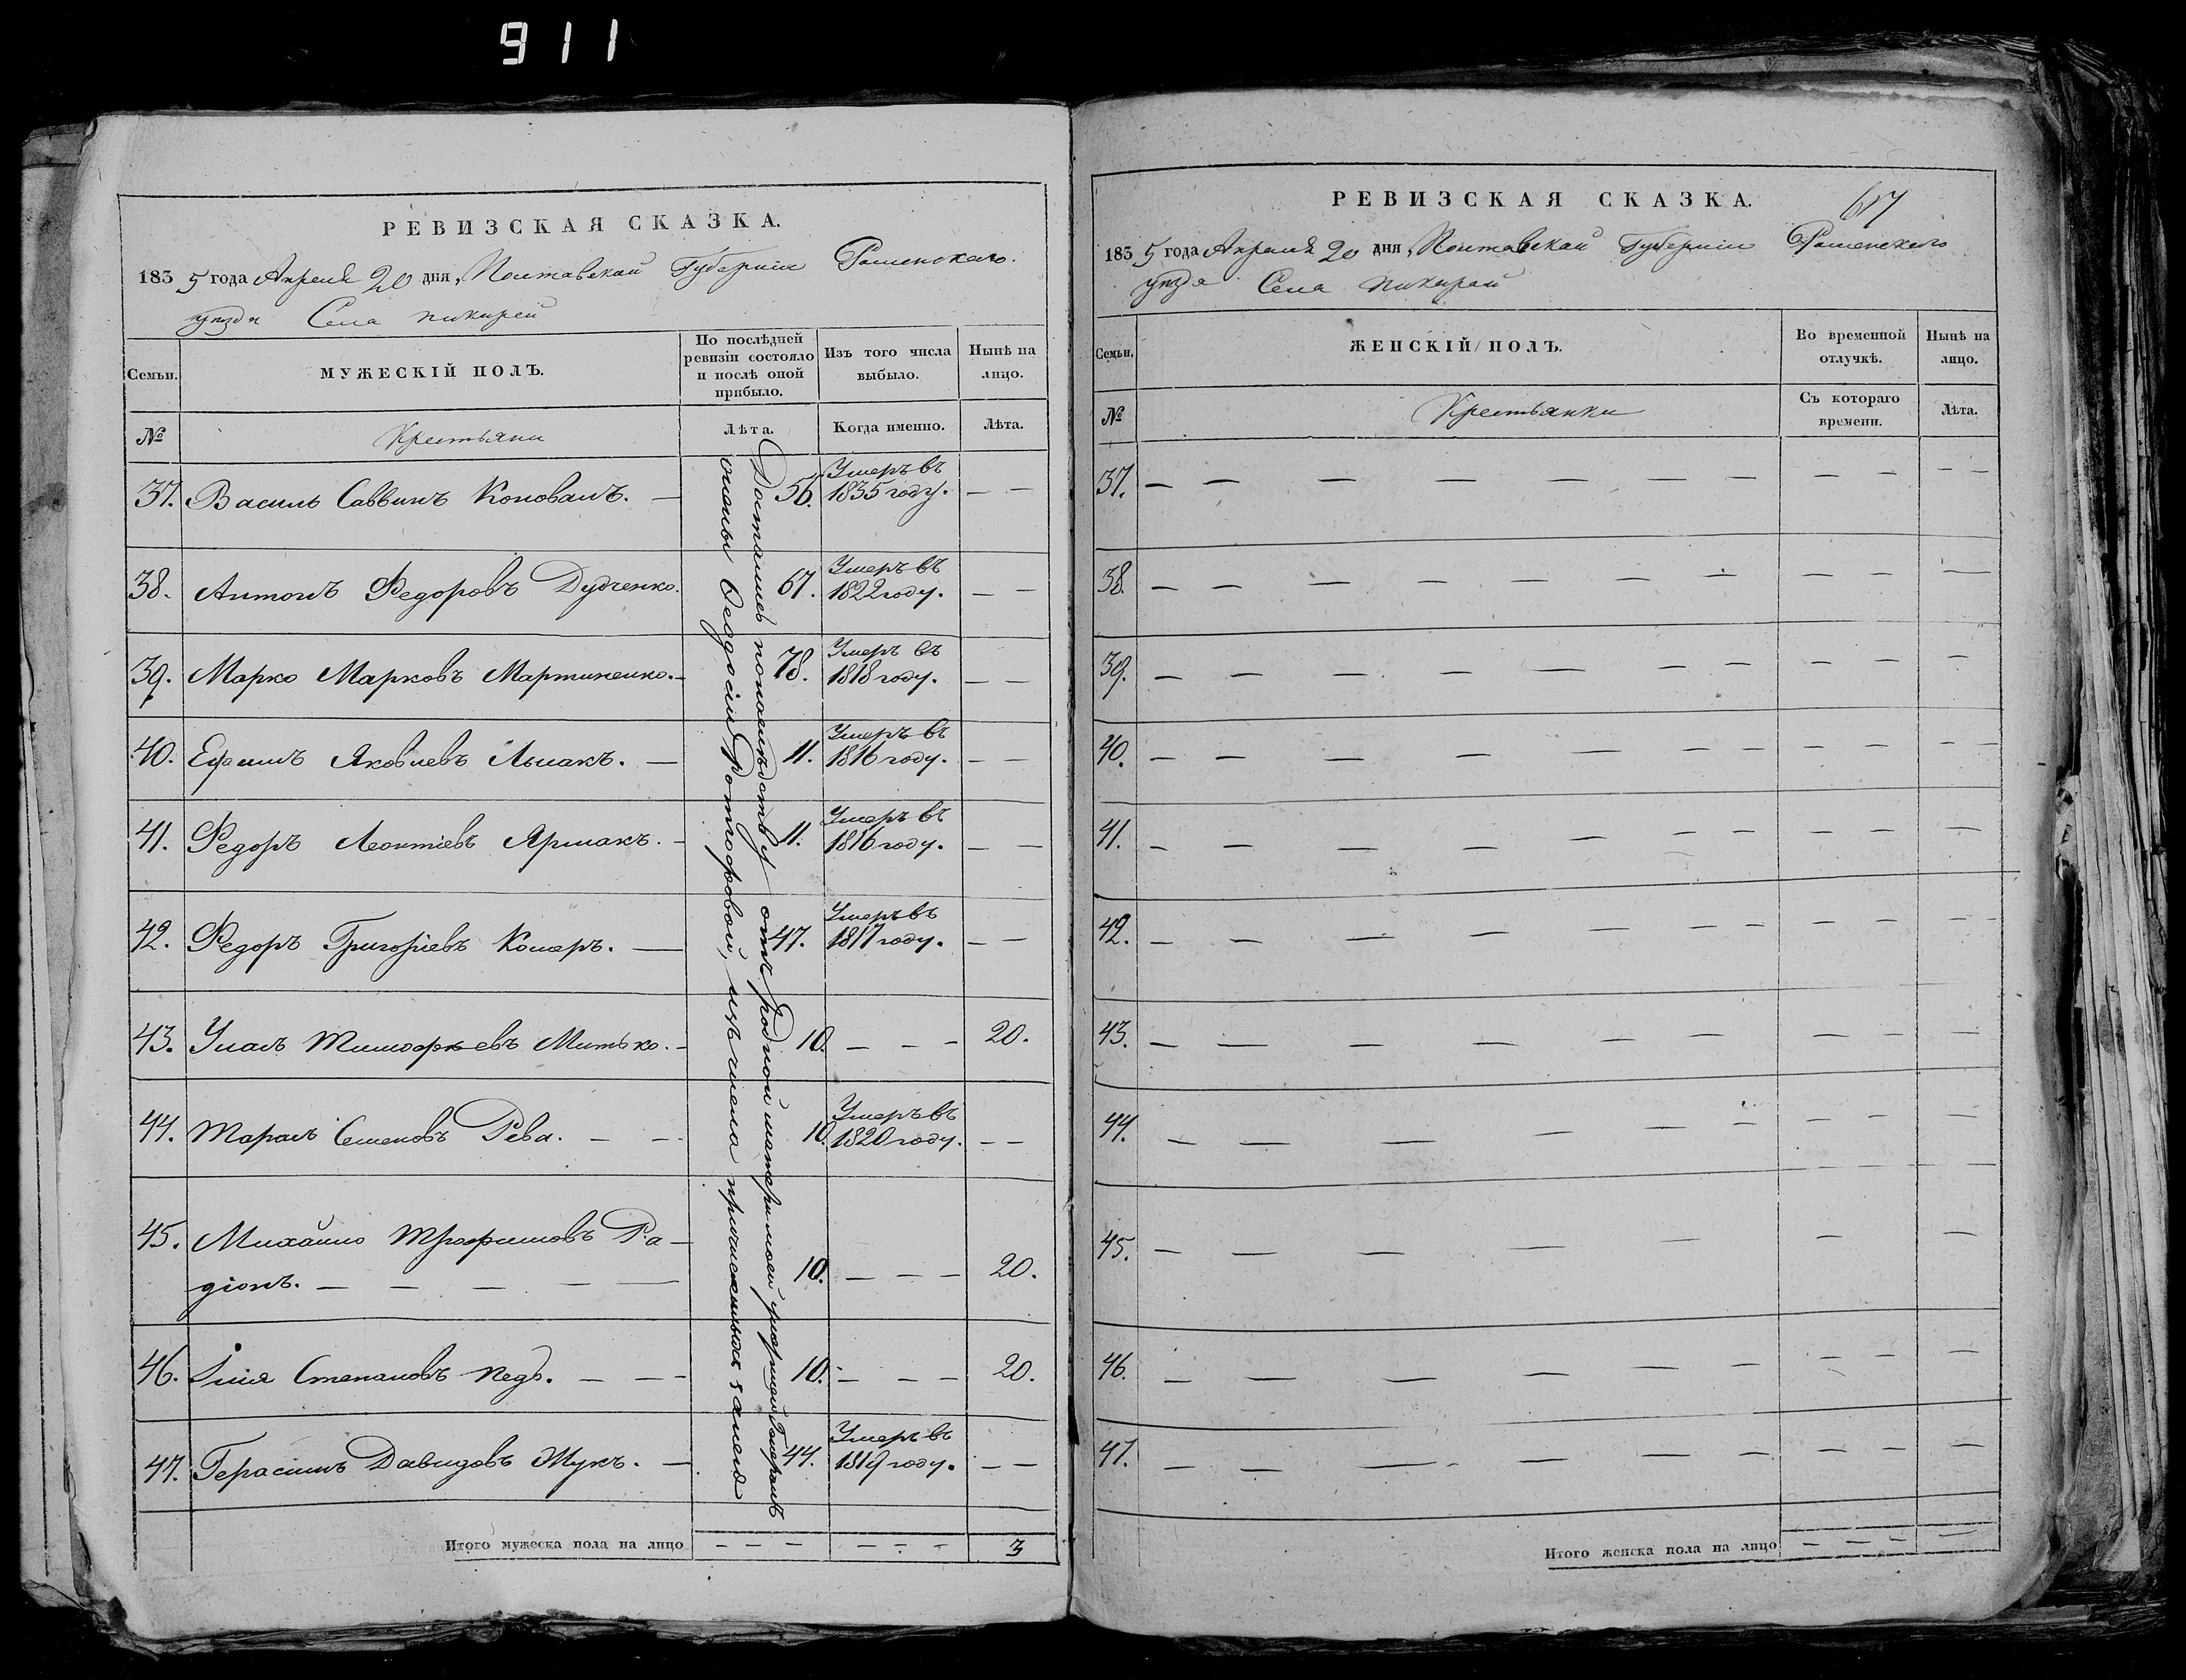 911
РЕВИЗСКАЯ СКАЗКА.
1835 года Апреля 20 дня, Полтавской Губернии Роменскаго.
уезда Села Пикарей
Семьи.
МУЖЕСКІЙ ПОЛЪ.
По послѣдней ревизіи состояло и послѣ оной прибыло.
Изъ того числа выбыло.
Нынѣ на лицо.
№
Крестьяни
Лѣта.
Когда именно.
Лѣта.
37. Василь Саввинъ Коновалъ. — 56. Умеръ въ 1835 году. — —
38. Антонъ Федоровъ Дудченко. 67. Умеръ въ 1822 году. — —
39. Марко Марковъ Мартиненко. — 78. Умеръ въ 1818 году. — —
40. Ефимъ Яковлевъ — 11. Умеръ въ 1816 году. — —
41. Федоръ Леонтіевъ Ярмакъ. — 11. Умеръ въ 1816 году. — —
42. Федоръ Григоріевъ Комаръ. — 47. Умеръ въ 1817 году. — —
43. Митько. — 10. — — — 20.
44. Тарасъ Семеновъ Рева. — — 10. Умеръ въ 1820 году. — —
45. Михайло Трофимовъ Ра-
діонъ. — — — — — 10. — — — 20.
46. Илля Степановъ Педь. — — — 10. — — — 20.
47. Герасимъ Давидовъ Жукъ. — 44. Умеръ въ 1819 году. — —
Достались по наслѣдству отъ родной матери моей умершей
изъ числа причисленныхъ
Итого мужеска пола на лицо — — — — — — 3
РЕВИЗСКАЯ СКАЗКА.
617
1835 года Апреля 20 дня, Полтавской Губернии Роменскаго
уезда Села Пикарей
Семьи.
ЖЕНСКІЙ ПОЛЪ.
Во временной отлучкѣ.
Нынѣ на лицо.
№
Крестьянки
Съ котораго времени.
Лѣта.
37. — — — — — — — — — — —
38. — — — — — — — — — — —
39. — — — — — — — — —
40. — — — — — — — — — — —
41. — — — — — — — — — —
42. — — — — — — — — — — —
43. — — — — — — — — — — —
44. — — — — — — — — — —
45. — — — — — — —
46. — — — — — — — —
47. — — — — — — — —
Итого женска пола на лицо — — — —